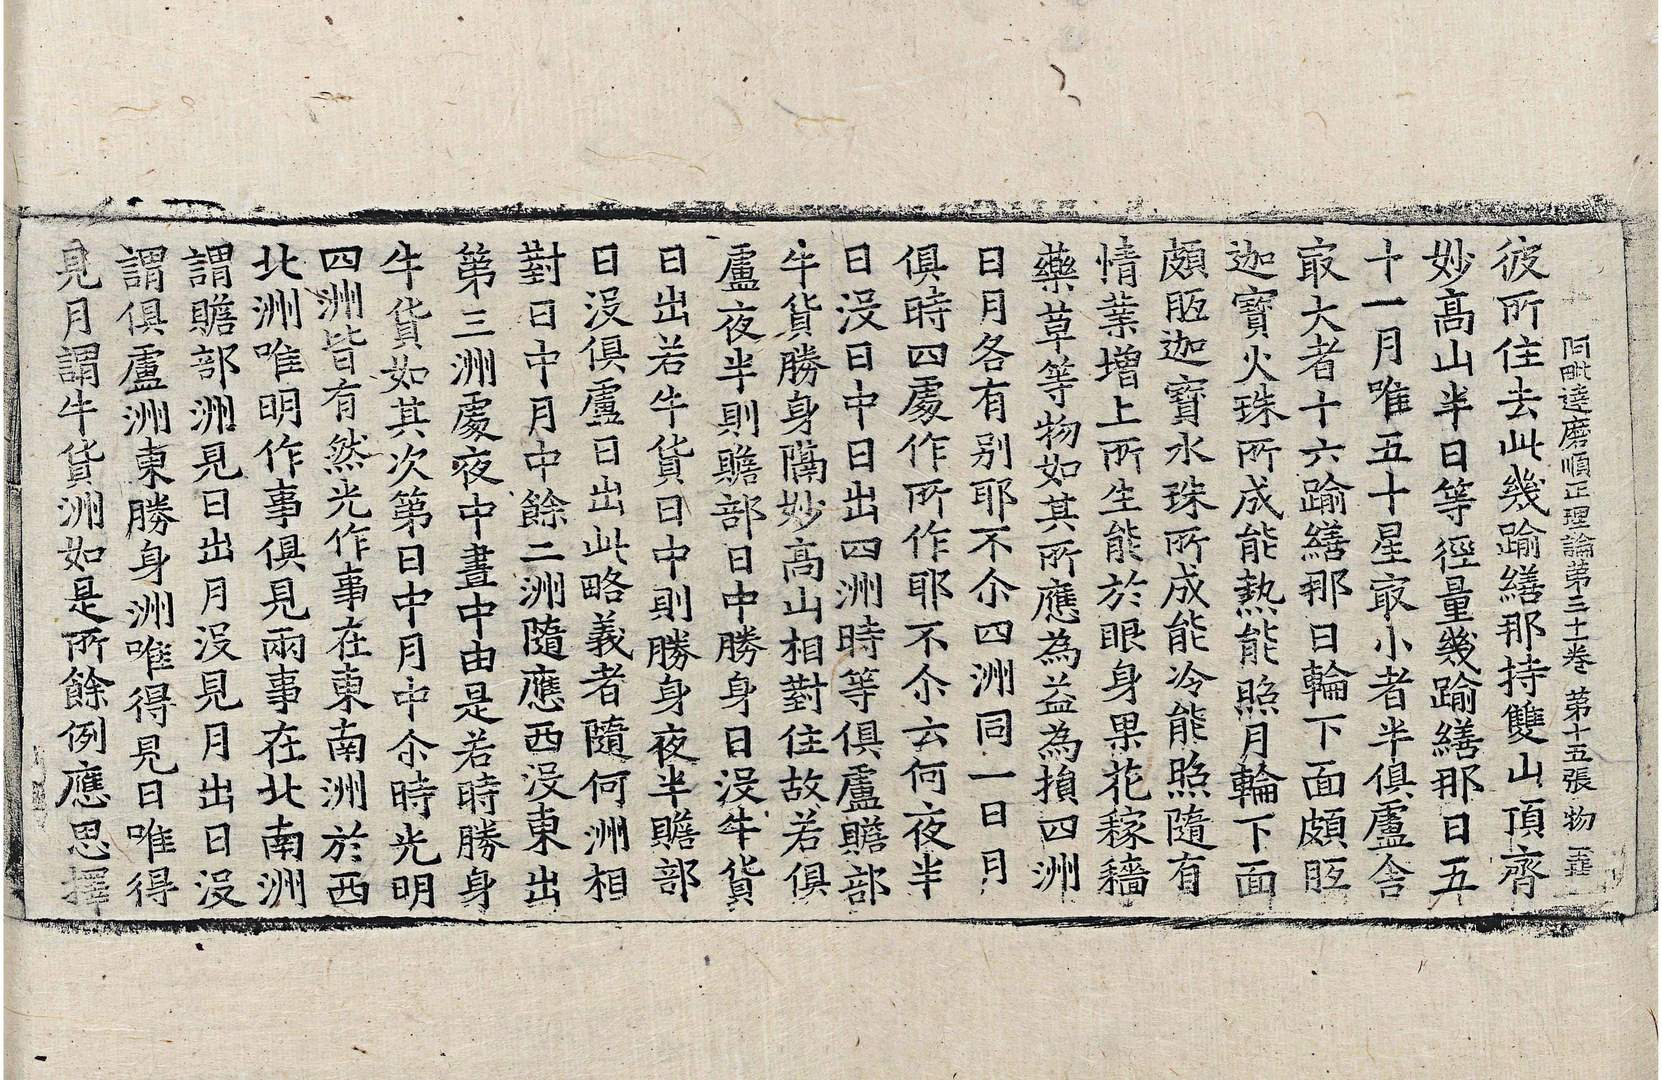 阿毗達磨順正理論第三十一卷 第十五張 物
彼所住去此幾踰繕那持雙山頂齊
妙高山半日等徑量幾踰繕那日五
十一月唯五十星㝡小者半俱盧舍
㝡大者十六踰繕那日輪下面頗胝
迦寶火珠所成能熱能照月輪下面
頗胝迦寶水珠所成能冷能照隨有
情業增上所生能於眼身果花稼穡
藥草等物如其所應為益為損四洲
日月各有別耶不尒四洲同一日月
俱時四處作所作耶不尒云何夜半
日沒日中日出四洲時等俱盧贍部
牛貨勝身隔妙高山相對住故若俱
盧夜半則贍部日中勝身日沒牛貨
日出若牛貨日中則勝身夜半贍部
日沒俱盧日出此略義者隨何洲相
對日中月中餘二洲隨應西沒東出
第三洲處夜中晝中由是若時勝身
牛貨如其次第日中月中尒時光明
四洲皆有然光作事在東南洲於西
北洲唯明作事俱見兩事在北南洲
謂贍部洲見日出月沒見月出日沒
謂俱盧洲東勝身洲唯得見日唯得
見月謂牛貨洲如是所餘例應思擇